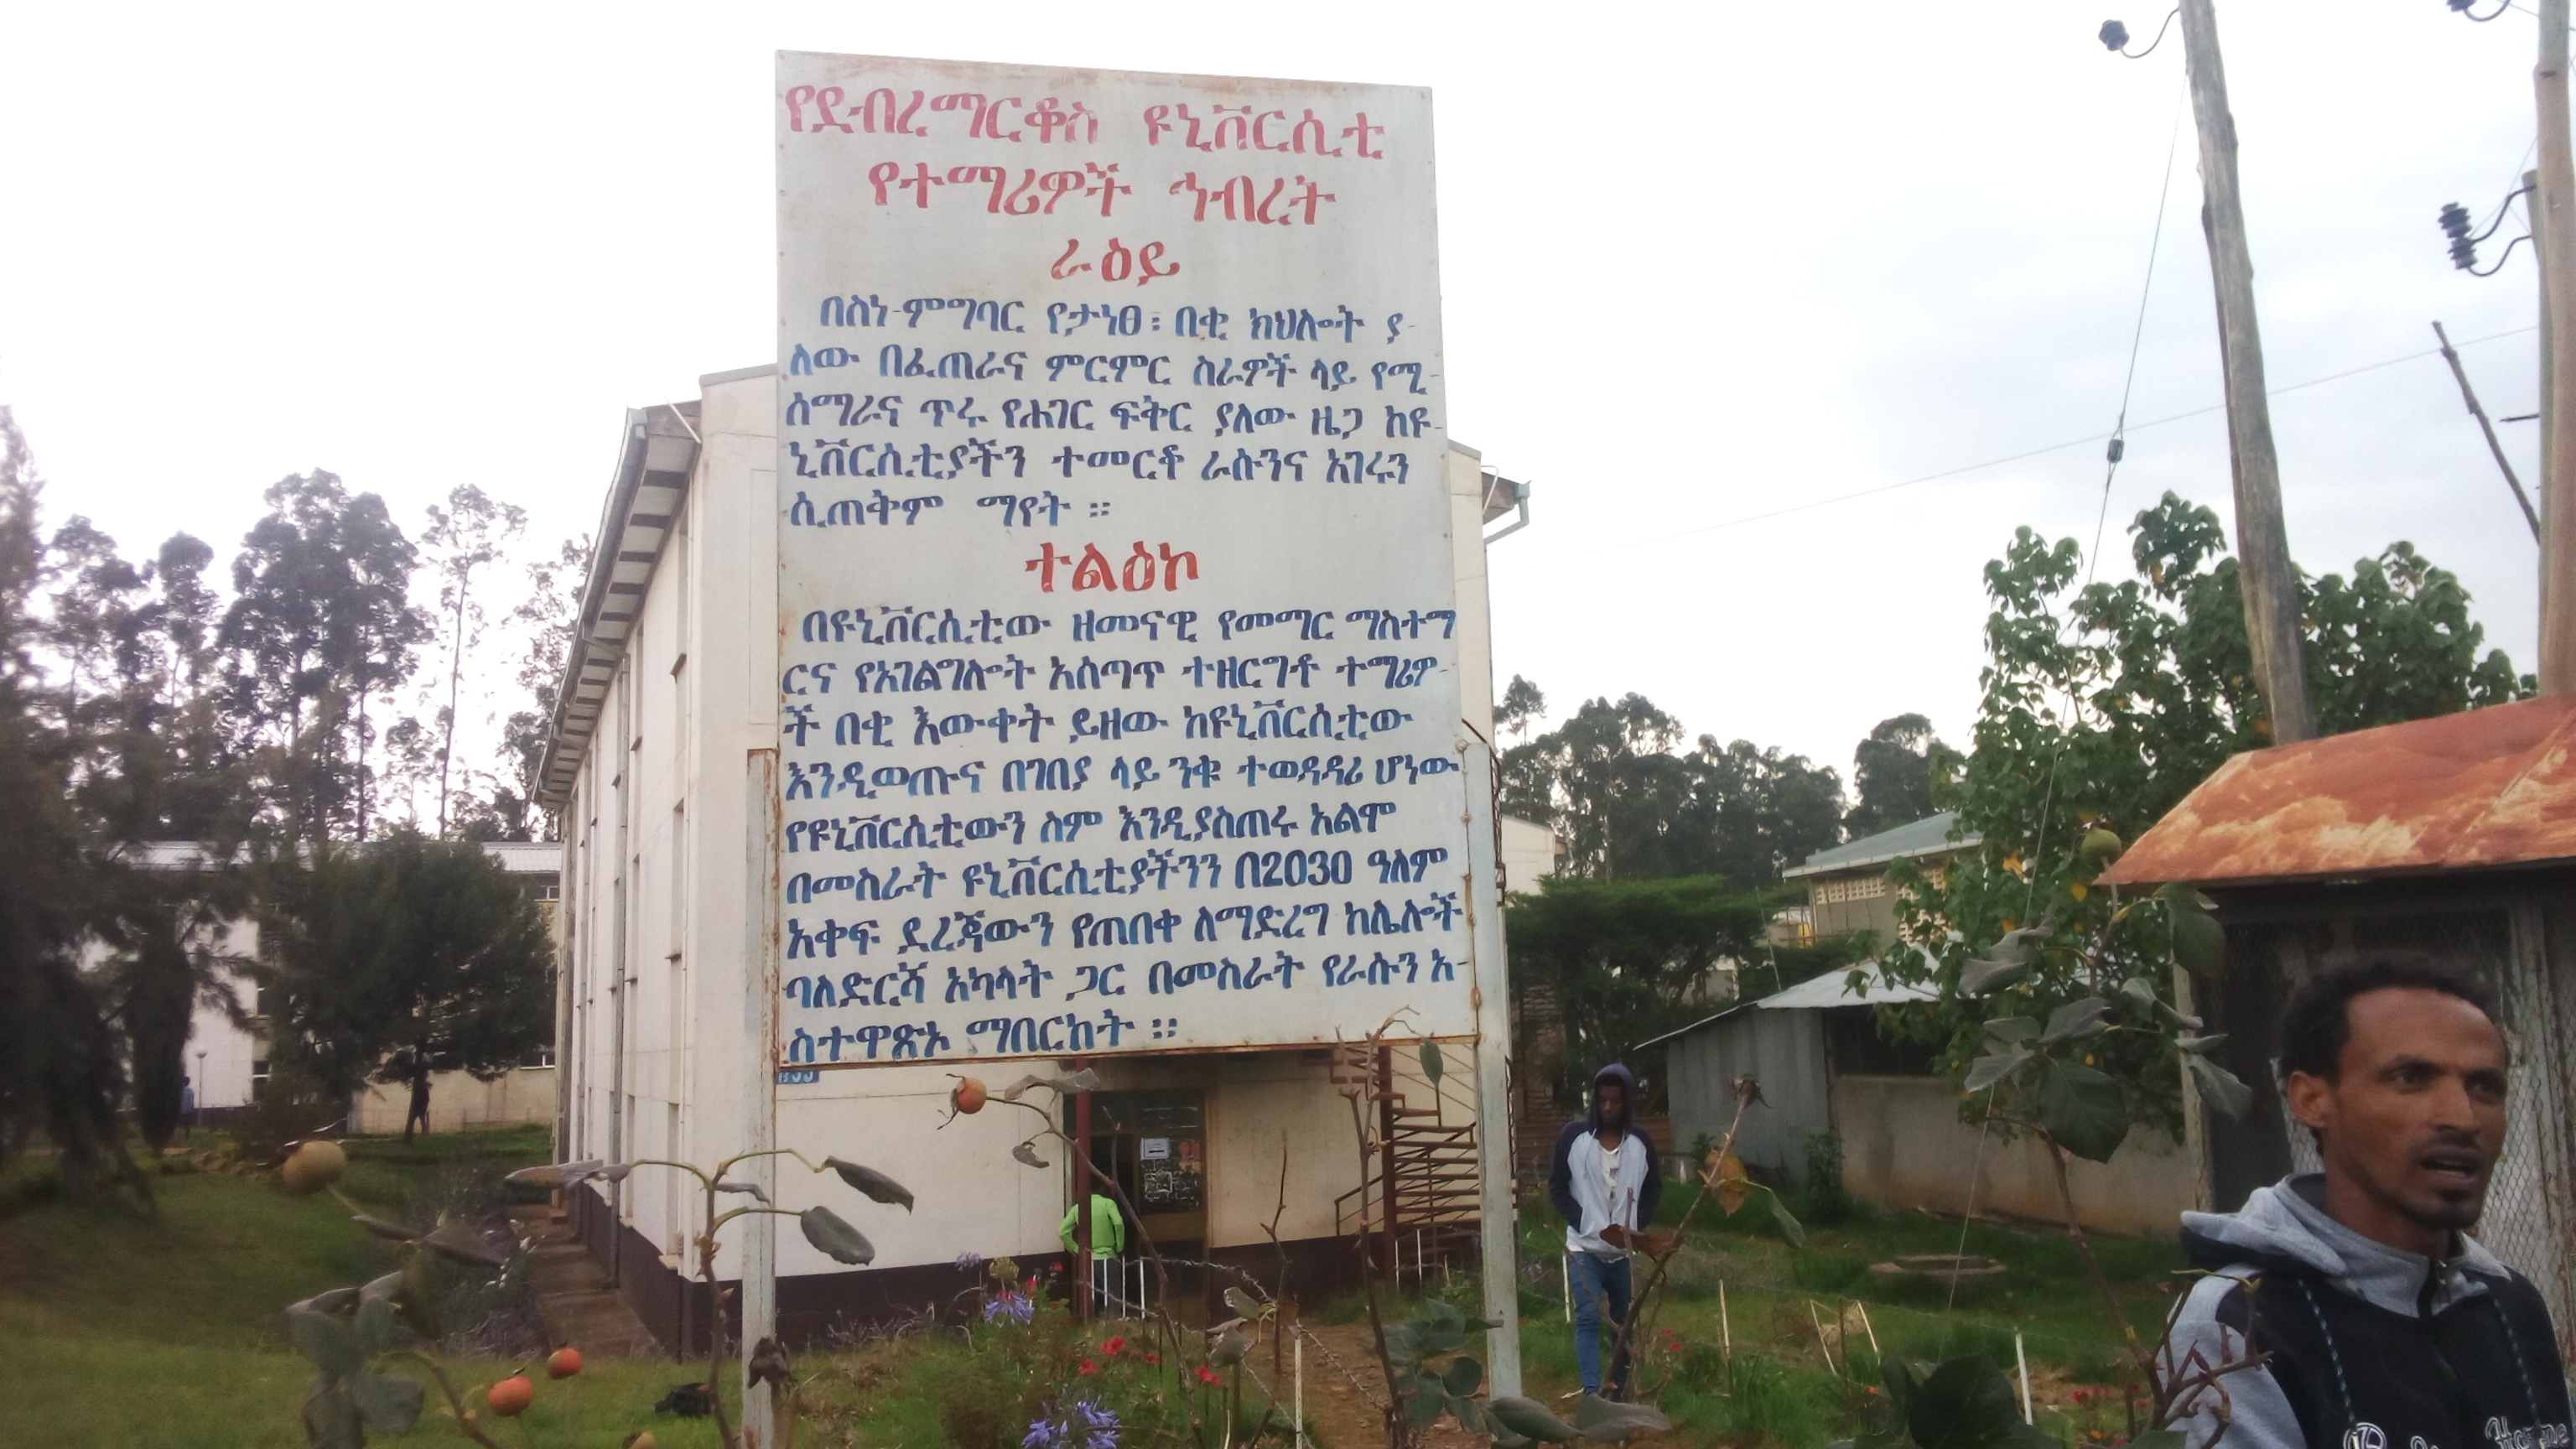 የደብረማርቆስ ዩኒቨርሲቲ
የተማሪዎች ኅብረት
ራዕይ
በስነ-ምግባር የታነፀ፡ በቂ ክህሎት ያ-
ለው በፈጠራና ምርምር ስራዎች ላይ የሚ-
ሰማራና ጥሩ የሐገር ፍቅር ያለው ዜጋ ከዩ-
ኒቨርሲቲያችን ተመርቆ ራሱንና አገሩን
ሲጠቅም ማየት ።
ተልዕኮ
በዩኒቨርሲቲው ዘመናዊ የመማር ማስተማ
ርና የአገልግሎት አሰጣጥ ተዘርግቶ ተማሪዎ-
ች በቂ እውቀት ይዘው ከዩኒቨርሲቲው
እንዲወጡና በገበያ ላይ ንቁ ተወዳዳሪ ሆነው
የዩኒቨርሲቲውን ስም እንዲያስጠሩ አልሞ
በመስራት ዩኒቨርሲቲያችንን በ2030 ዓለም
አቀፍ ደረጃውን የጠበቀ ለማድረግ ከሌሎች
ባለድርሻ አካላት ጋር በመስራት የራሱን አ-
ስተዋጽኦ ማበርከት ።